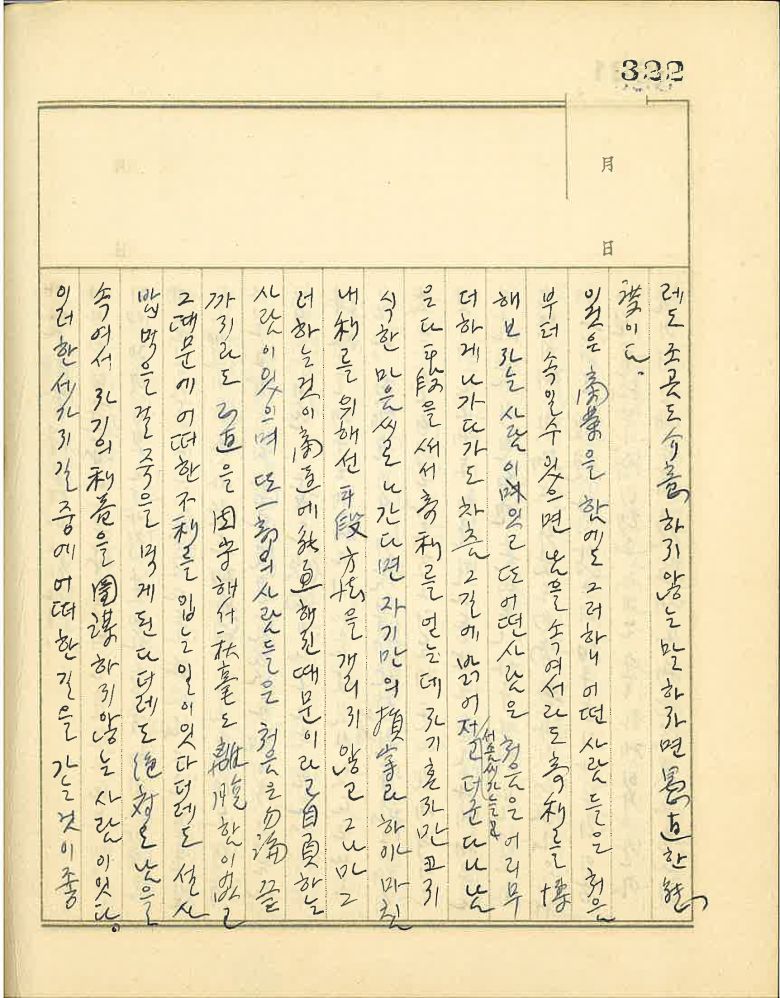 322
月
日
레도 조곰도 介意하지않는 말하자면 愚直한
이다.
일것은 商業을 함에도 그러하니 어떤 사람들은 처음
부터 속일수 있으면 남을 속여서라도 暴利를 博
해보자는 사람이 있고 또 어떤사람은 처음은 어리무
더하게 나가다가도 차츰 그길에 밝어저고 더군다나 남
은 다 手段을 써서 暴利를 얻는데 자기혼자만 고지
식한 마음씨로 나간다면 자기만의 損害라 하야 마침
내 利를 위해선 手段方法을 개리지 않고 그나마 그
러하는것이 商道에 能通해진 때문이라고 自負하는
사람이 있으며 또 一部의 사람들은 처음은 勿論 끝
까지라도 正直을 固守해서 秋毫도 함이 없고
그때문에 어떠한 不利를 입는 일이 있다더레도 설사
밥먹을걸 죽을 먹게 된다더레도 絶對로 남을
속여서 자기의 利益을 圖謀하지않는 사람이 있다.
이러한 세가지길 중에 어떠한 길을 가는것이 좋